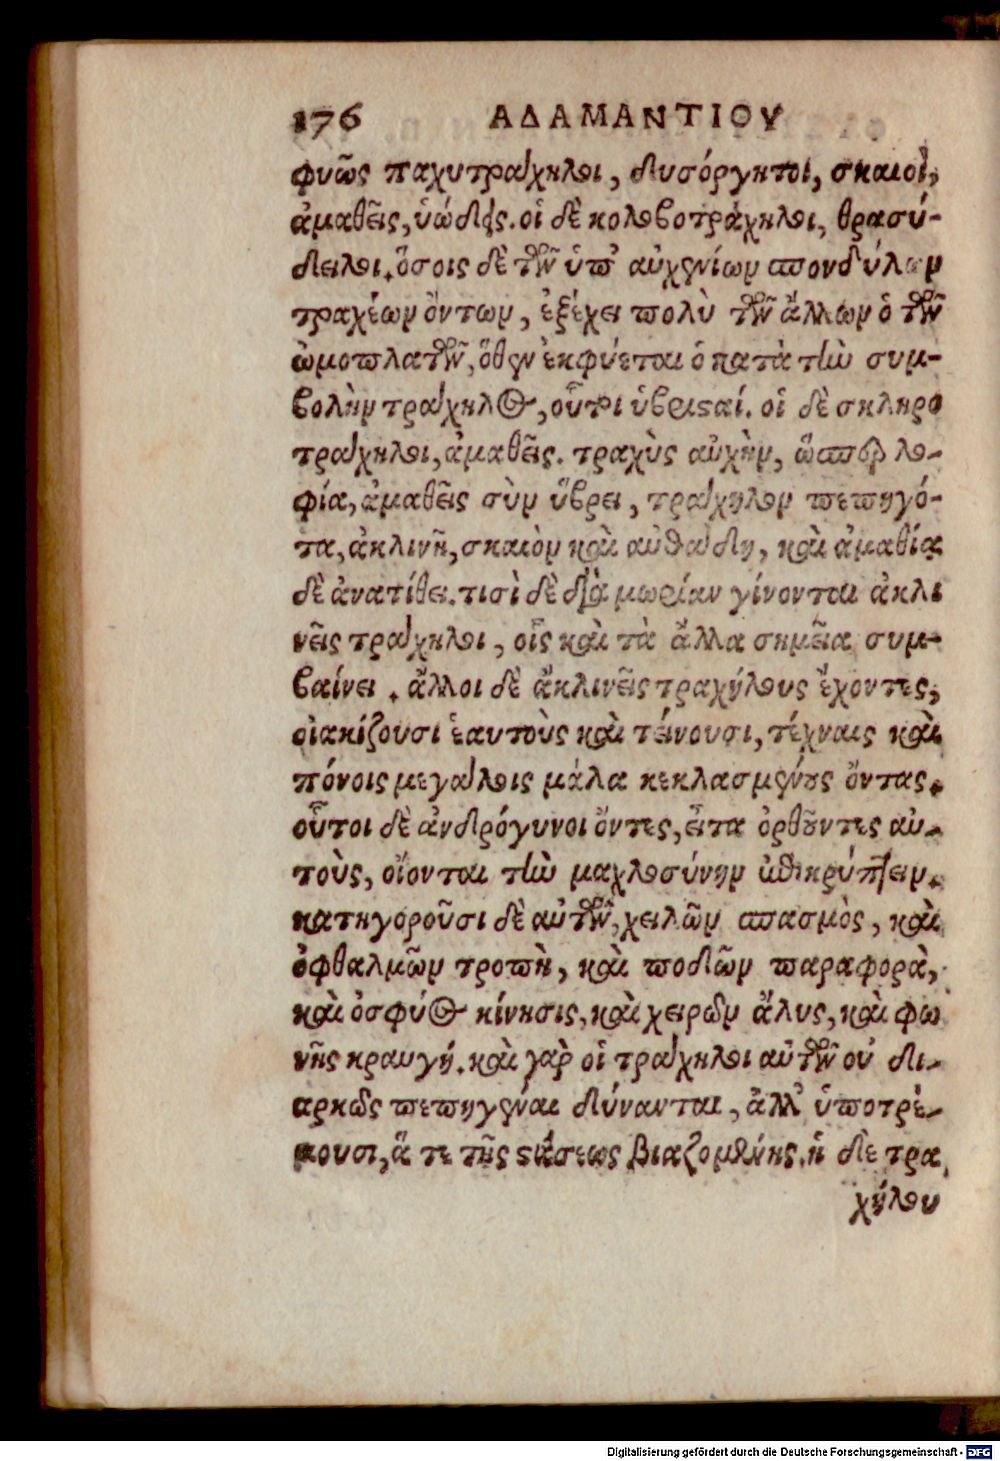 176 ΑΔΑΜΑΝΤΙΟΥ
φυῶς παχυτράχηλοι, δυσόργητοι, σκαιοὶ,
ἀμαθεῖς, ὑώδεις. οἱ δὲ κολοβοτράχηλοι, θρασύ-
δειλοι. ὅσοις δὲ τῶν ὑπ' αὐχενίων σπονδύλων
τραχέων ὄντων, ἐξέχει πολὺ τῶν ἄλλων ὁ τῶν
ὠμοπλατῶν, ὅθεν ἐκφύεται ὁ κατὰ τὴν συμ-
βολὴν τράχηλος, οὗτοι ὑβρισταί. οἱ δὲ σκληρο
τράχηλοι, ἀμαθεῖς. τραχὺς αὐχὴν, ὥσπερ λο-
φία, ἀμαθεῖς σὺν ὕβρει, τράχηλον πεπηγό-
τα, ἀκλινῆ, σκαιὸν καὶ αὐθάδη, καὶ ἀμαθία
δὲ ἀνατίθει. τισὶ δὲ διὰ μωρίαν γίνονται ἀκλι
νεῖς τράχηλοι, οἷς καὶ τὰ ἄλλα σημεῖα συμ-
βαίνει. ἄλλοι δὲ ἄκλινεῖς τραχήλους ἔχοντες,
οἰακίζουσι ἑαυτοὺς καὶ τείνουσι, τέχναις καὶ
πόνοις μεγάλοις μάλα κεκλασμένους ὄντας.
οὗτοι δὲ ἀνδρόγυνοι ὄντες, εἶτα ὀρθοῦντες αὑ-
τοὺς, οἴονται τὴν μαχλοσύνην ἐπικρύπτειν.
κατηγοροῦσι δὲ αὐτῶν, χειλῶν σπασμὸς, καὶ
ὀφθαλμῶν τροπὴ, καὶ ποδῶν παραφορὰ,
καὶ ὀσφύος κίνησις, καὶ χειρῶν ἄλυς, καὶ φω
νῆς κραυγή. καὶ γὰρ οἱ τράχηλοι αὐτῶν οὐ δι-
αρκῶς πεπηγέναι δύνανται, ἀλλ' ὑποτρέ-
μουσι, ἅ τε τῆς στάσεως βιαζομένης. ἡ δὲ τρα
χήλου
Digitalisierung gefördert durch die Deutsche Forschungsgemeinschaft - DFG